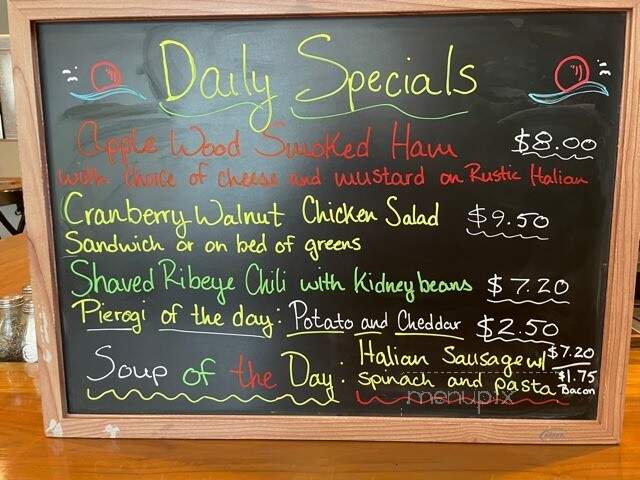 Daily Specials
Apple Wood Smoked Ham $8.00
with choice of cheese and mustard on Rustic Italian
Cranberry Walnut Chicken Salad $9.50
Sandwich or on bed of greens
Shaved Ribeye Chili with Kidney beans $7.20
Pierogi of the day: Potato and Cheddar $2.50
Soup of the Day: Italian Sausage w/ $7.20
spinach and pasta $1.75
Bacon
menupix